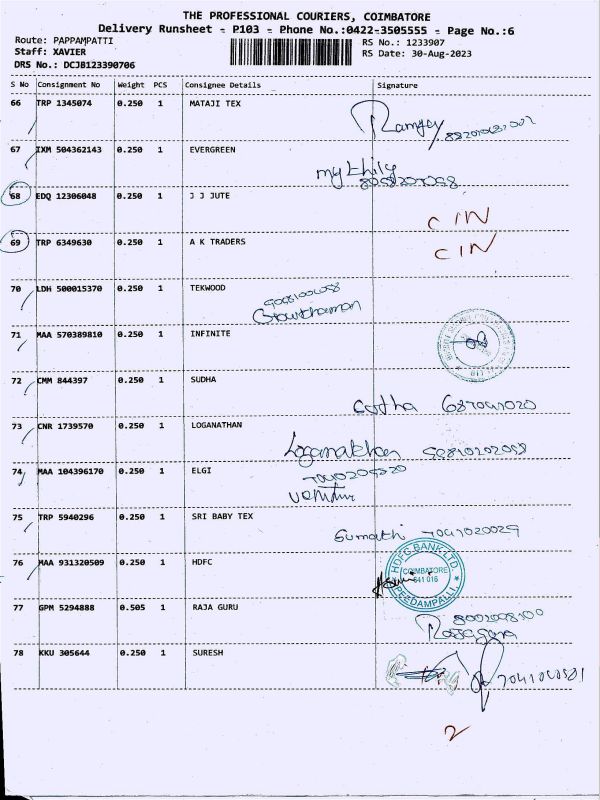 THE PROFESSIONAL COURIERS, COIMBATORE
Delivery Runsheet - P103 - Phone No.:0422-3505555 - Page No.:6
Route: PAPPAMPATTI RS No.: 1233907
Staff: XAVIER RS Date: 30-Aug-2023
DRS No.: DCJB123390706
S No Consignment No Weight PCS Consignee Details Signature
66 TRP 1345074 0.250 1 MATAJI TEX
67 IXM 504362143 0.250 1 EVERGREEN
mythily
68 EDQ 12306048 0.250 1 J J JUTE
CIN
69 TRP 6349630 0.250 1 A K TRADERS
CIN
70 LDH 500015370 0.250 1 TEKWOOD
Gowthaman
71 MAA 570389810 0.250 1 INFINITE
72 CMM 844397 0.250 1 SUDHA
73 CNR 1739570 0.250 1 LOGANATHAN
Loganathan
74 MAA 104396170 0.250 1 ELGI
75 TRP 5940296 0.250 1 SRI BABY TEX
Sumathi 7041020029
76 MAA 931320509 0.250 1 HDFC
HDFC BANK LTD.
COIMBATORE
641 016
PEEDAMPALLI
77 GPM 5294888 0.505 1 RAJA GURU
78 KKU 305644 0.250 1 SURESH
2